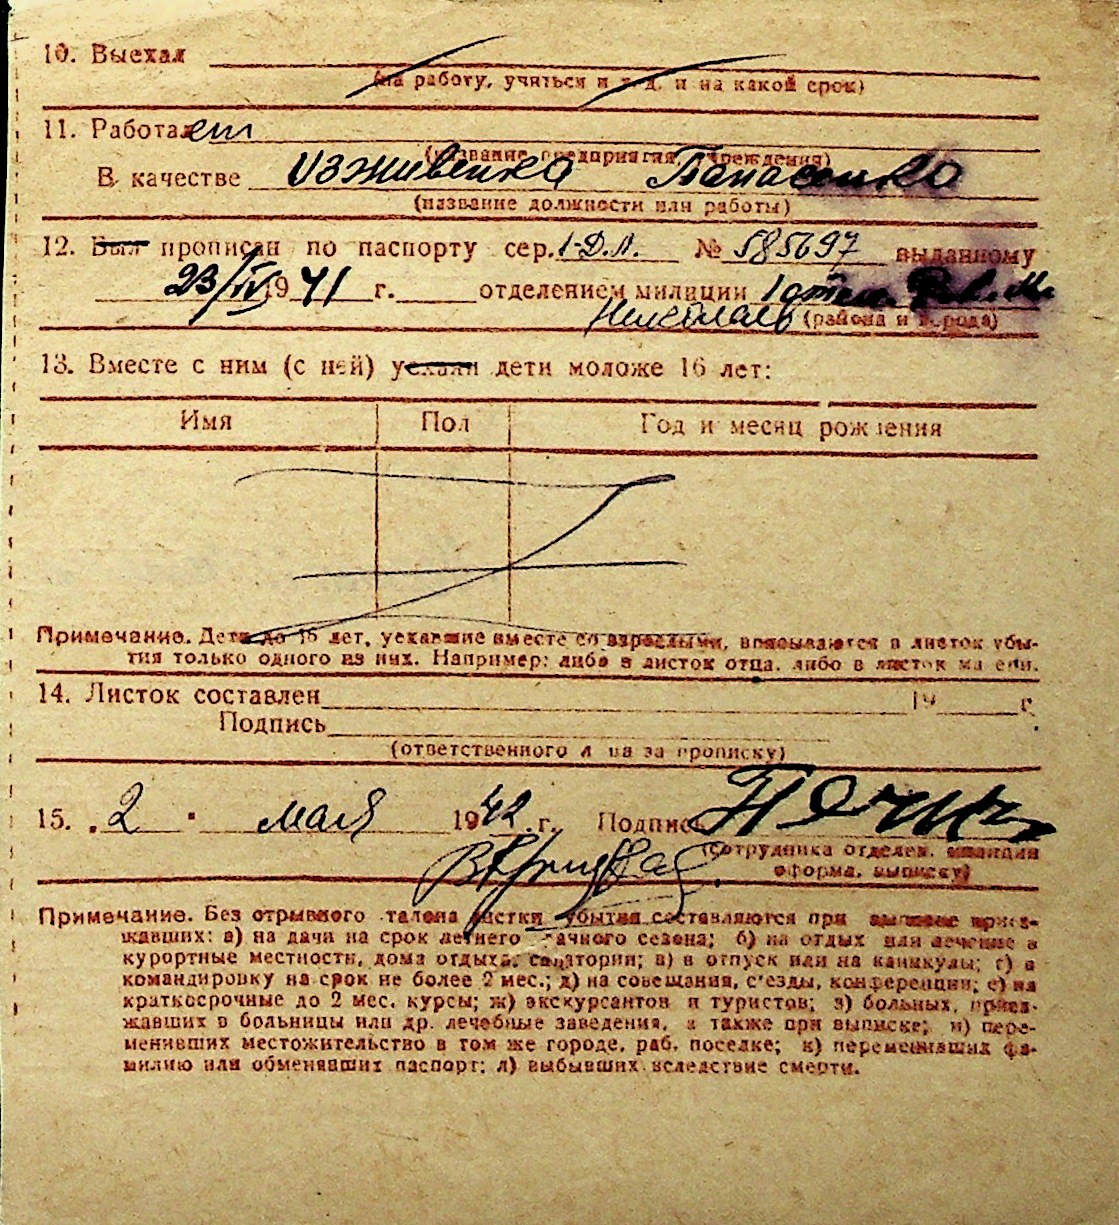 10. Выехал
(на работу, учиться и т. д. и на какой срок)
11. Работает
(название предприятия, учреждения)
В качестве Иждивенка Панасенко
(название должности или работы)
12. Был прописан по паспорту сер. 1-Д.Л. № 585697 выданному
23/IV 1941 г. отделением милиции 1 отел.
(района и города)
13. Вместе с ним (с ней) уехали дети моложе 16 лет:
Имя Пол Год и месяц рождения
Примечание. Дети до 16 лет, уехавшие вместе со взрослыми, вписываются в листок убы-
тия только одного из них. Например: либо в листок отца, либо в листок матери.
14. Листок составлен 19 г.
Подпись
(ответственного лица за прописку)
15. "2" мая 1942 г. Подпись
(сотрудника отделен. милиции
оформ. выписку)
Примечание. Без отрывного талона листки убытия составляются при выписке приез-
жавших: а) на дачи на срок летнего дачного сезона; б) на отдых или лечение в
курортные местности, дома отдыха, санатории; в) в отпуск или на каникулы; г) в
командировку на срок не более 2 мес.; д) на совещания, с'езды, конференции; е) на
краткосрочные до 2 мес. курсы; ж) экскурсантов и туристов; з) больных, приез-
жавших в больницы или др. лечебные заведения, а также при выписке; и) пере-
менивших местожительство в том же городе, раб. поселке; к) переменивших фа-
милию или обменявших паспорт; л) выбывших вследствие смерти.